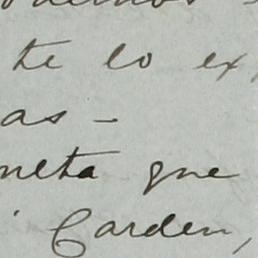 te lo ex
as -
neta que
Carden,